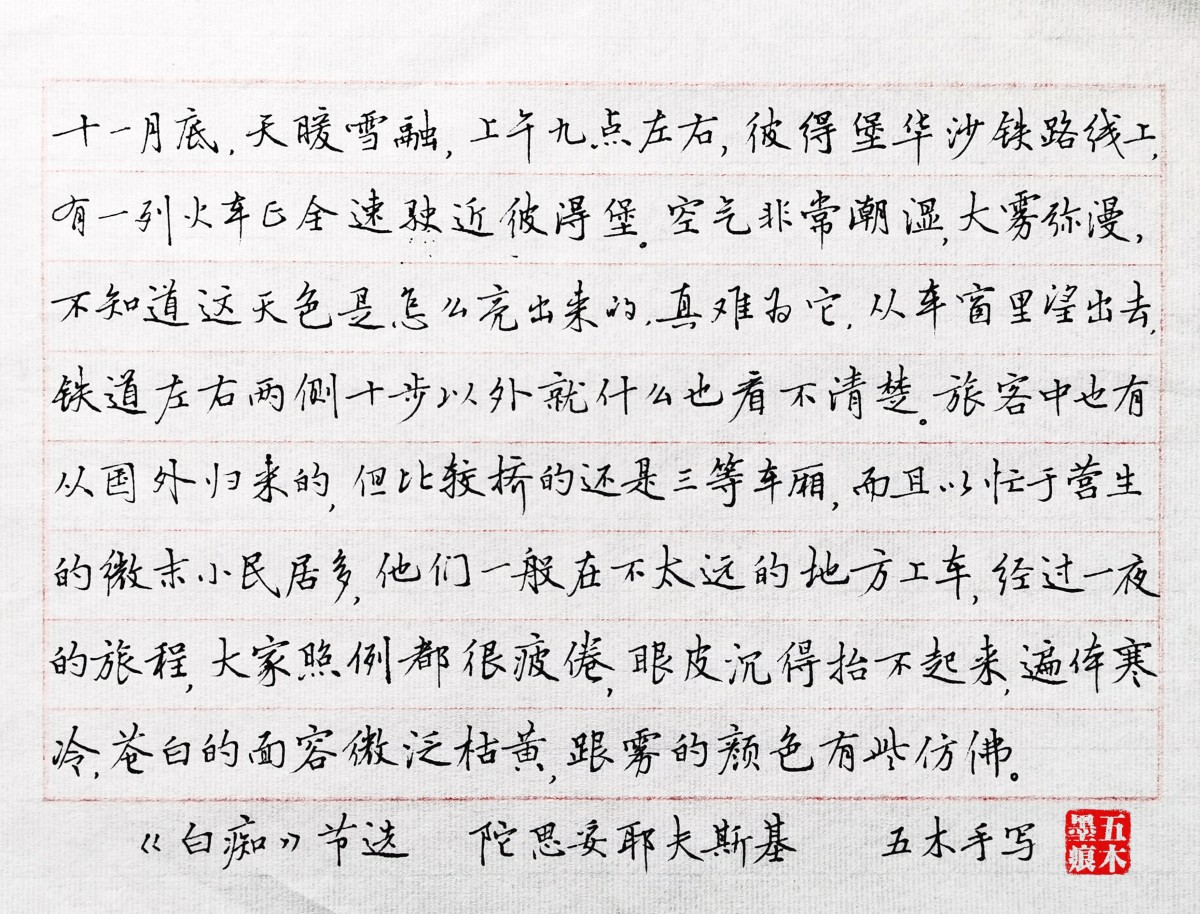 十一月底，天暖雪融，上午九点左右，彼得堡华沙铁路线上，
有一列火车正全速驶近彼得堡。空气非常潮湿，大雾弥漫，
不知道这天色是怎么亮出来的，真难为它，从车窗里望出去，
铁道左右两侧十步以外就什么也看不清楚。旅客中也有
从国外归来的，但比较挤的还是三等车厢，而且以忙于营生
的微末小民居多，他们一般在不太远的地方上车，经过一夜
的旅程，大家照例都很疲倦，眼皮沉得抬不起来，遍体寒
冷，苍白的面容微泛枯黄，跟雾的颜色有些仿佛。
《白痴》节选 陀思妥耶夫斯基 五木手写
五木墨痕